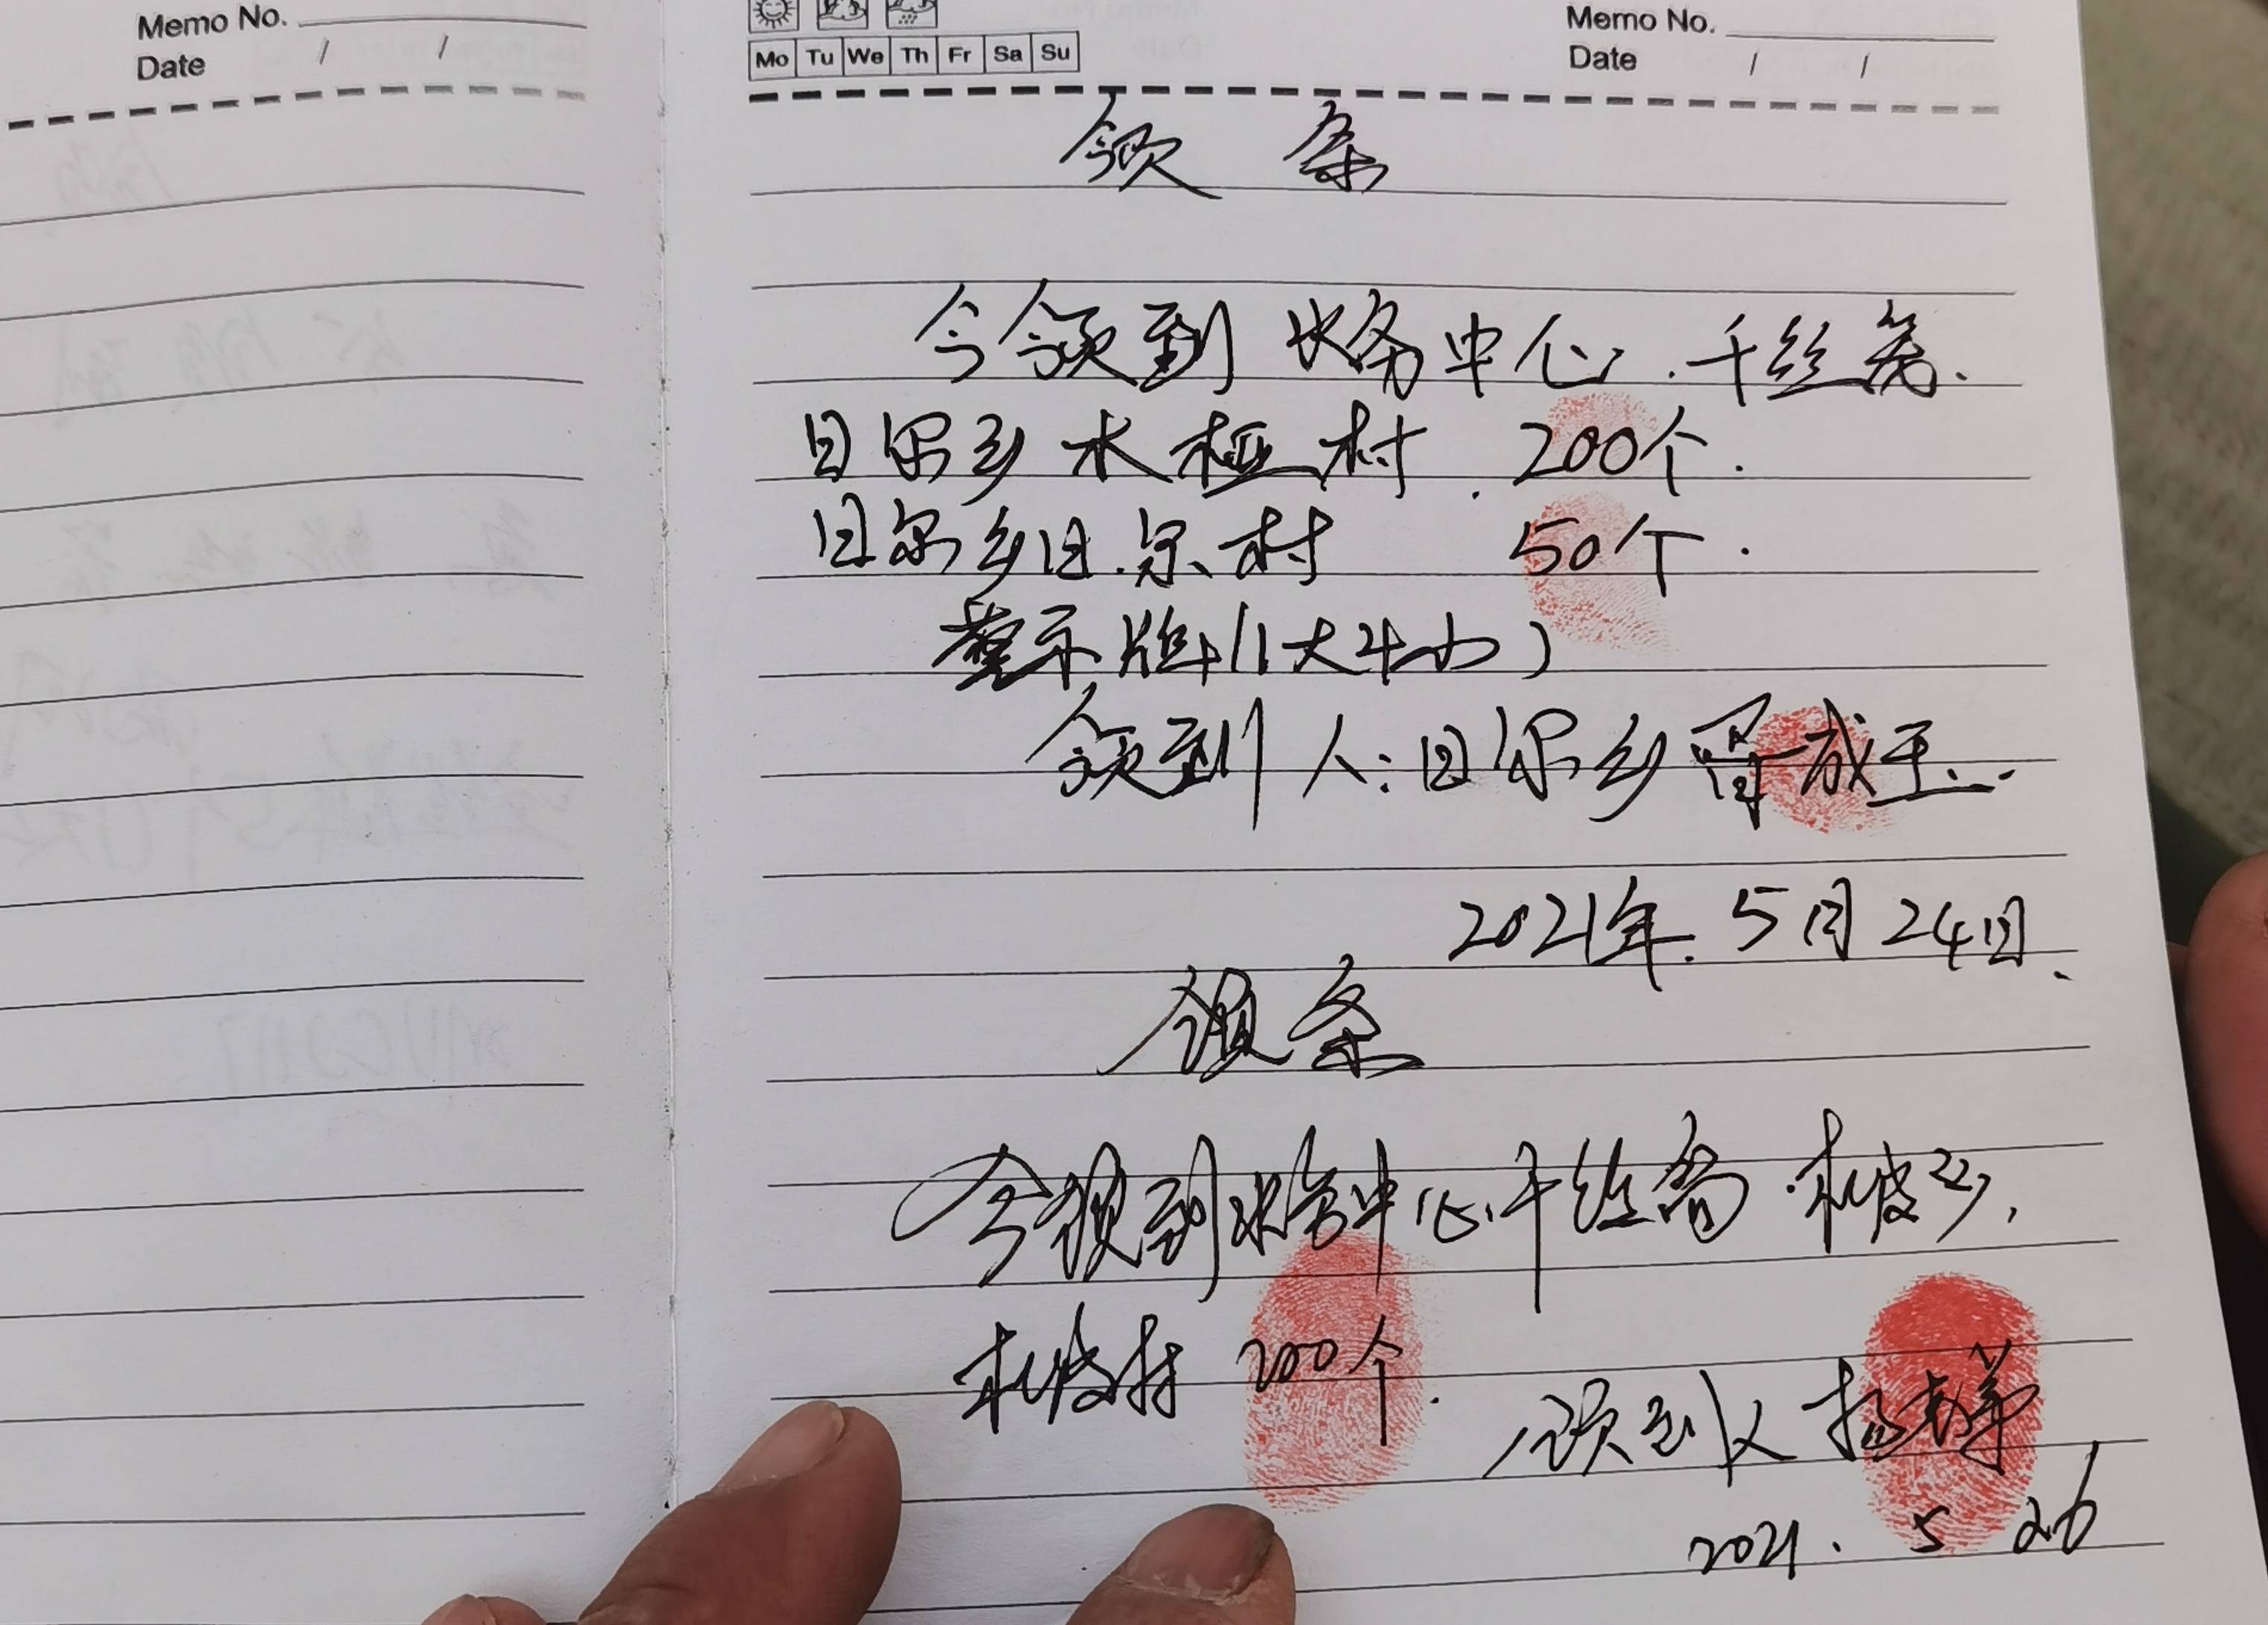 Memo No.
Date / /
Mo Tu We Th Fr Sa Su
Memo No.
Date / /
领条
今领到水务中心.千丝笼.
日尔乡木桠村.200个.
日尔乡日.尔村 50个.
警示牌(1大4小)
领到人:日尔乡 成王..
2021年.5月24日.
领条
今领到水务中心千丝笼.札坡乡,
札坡村 200个.
领到人
2021.5 26